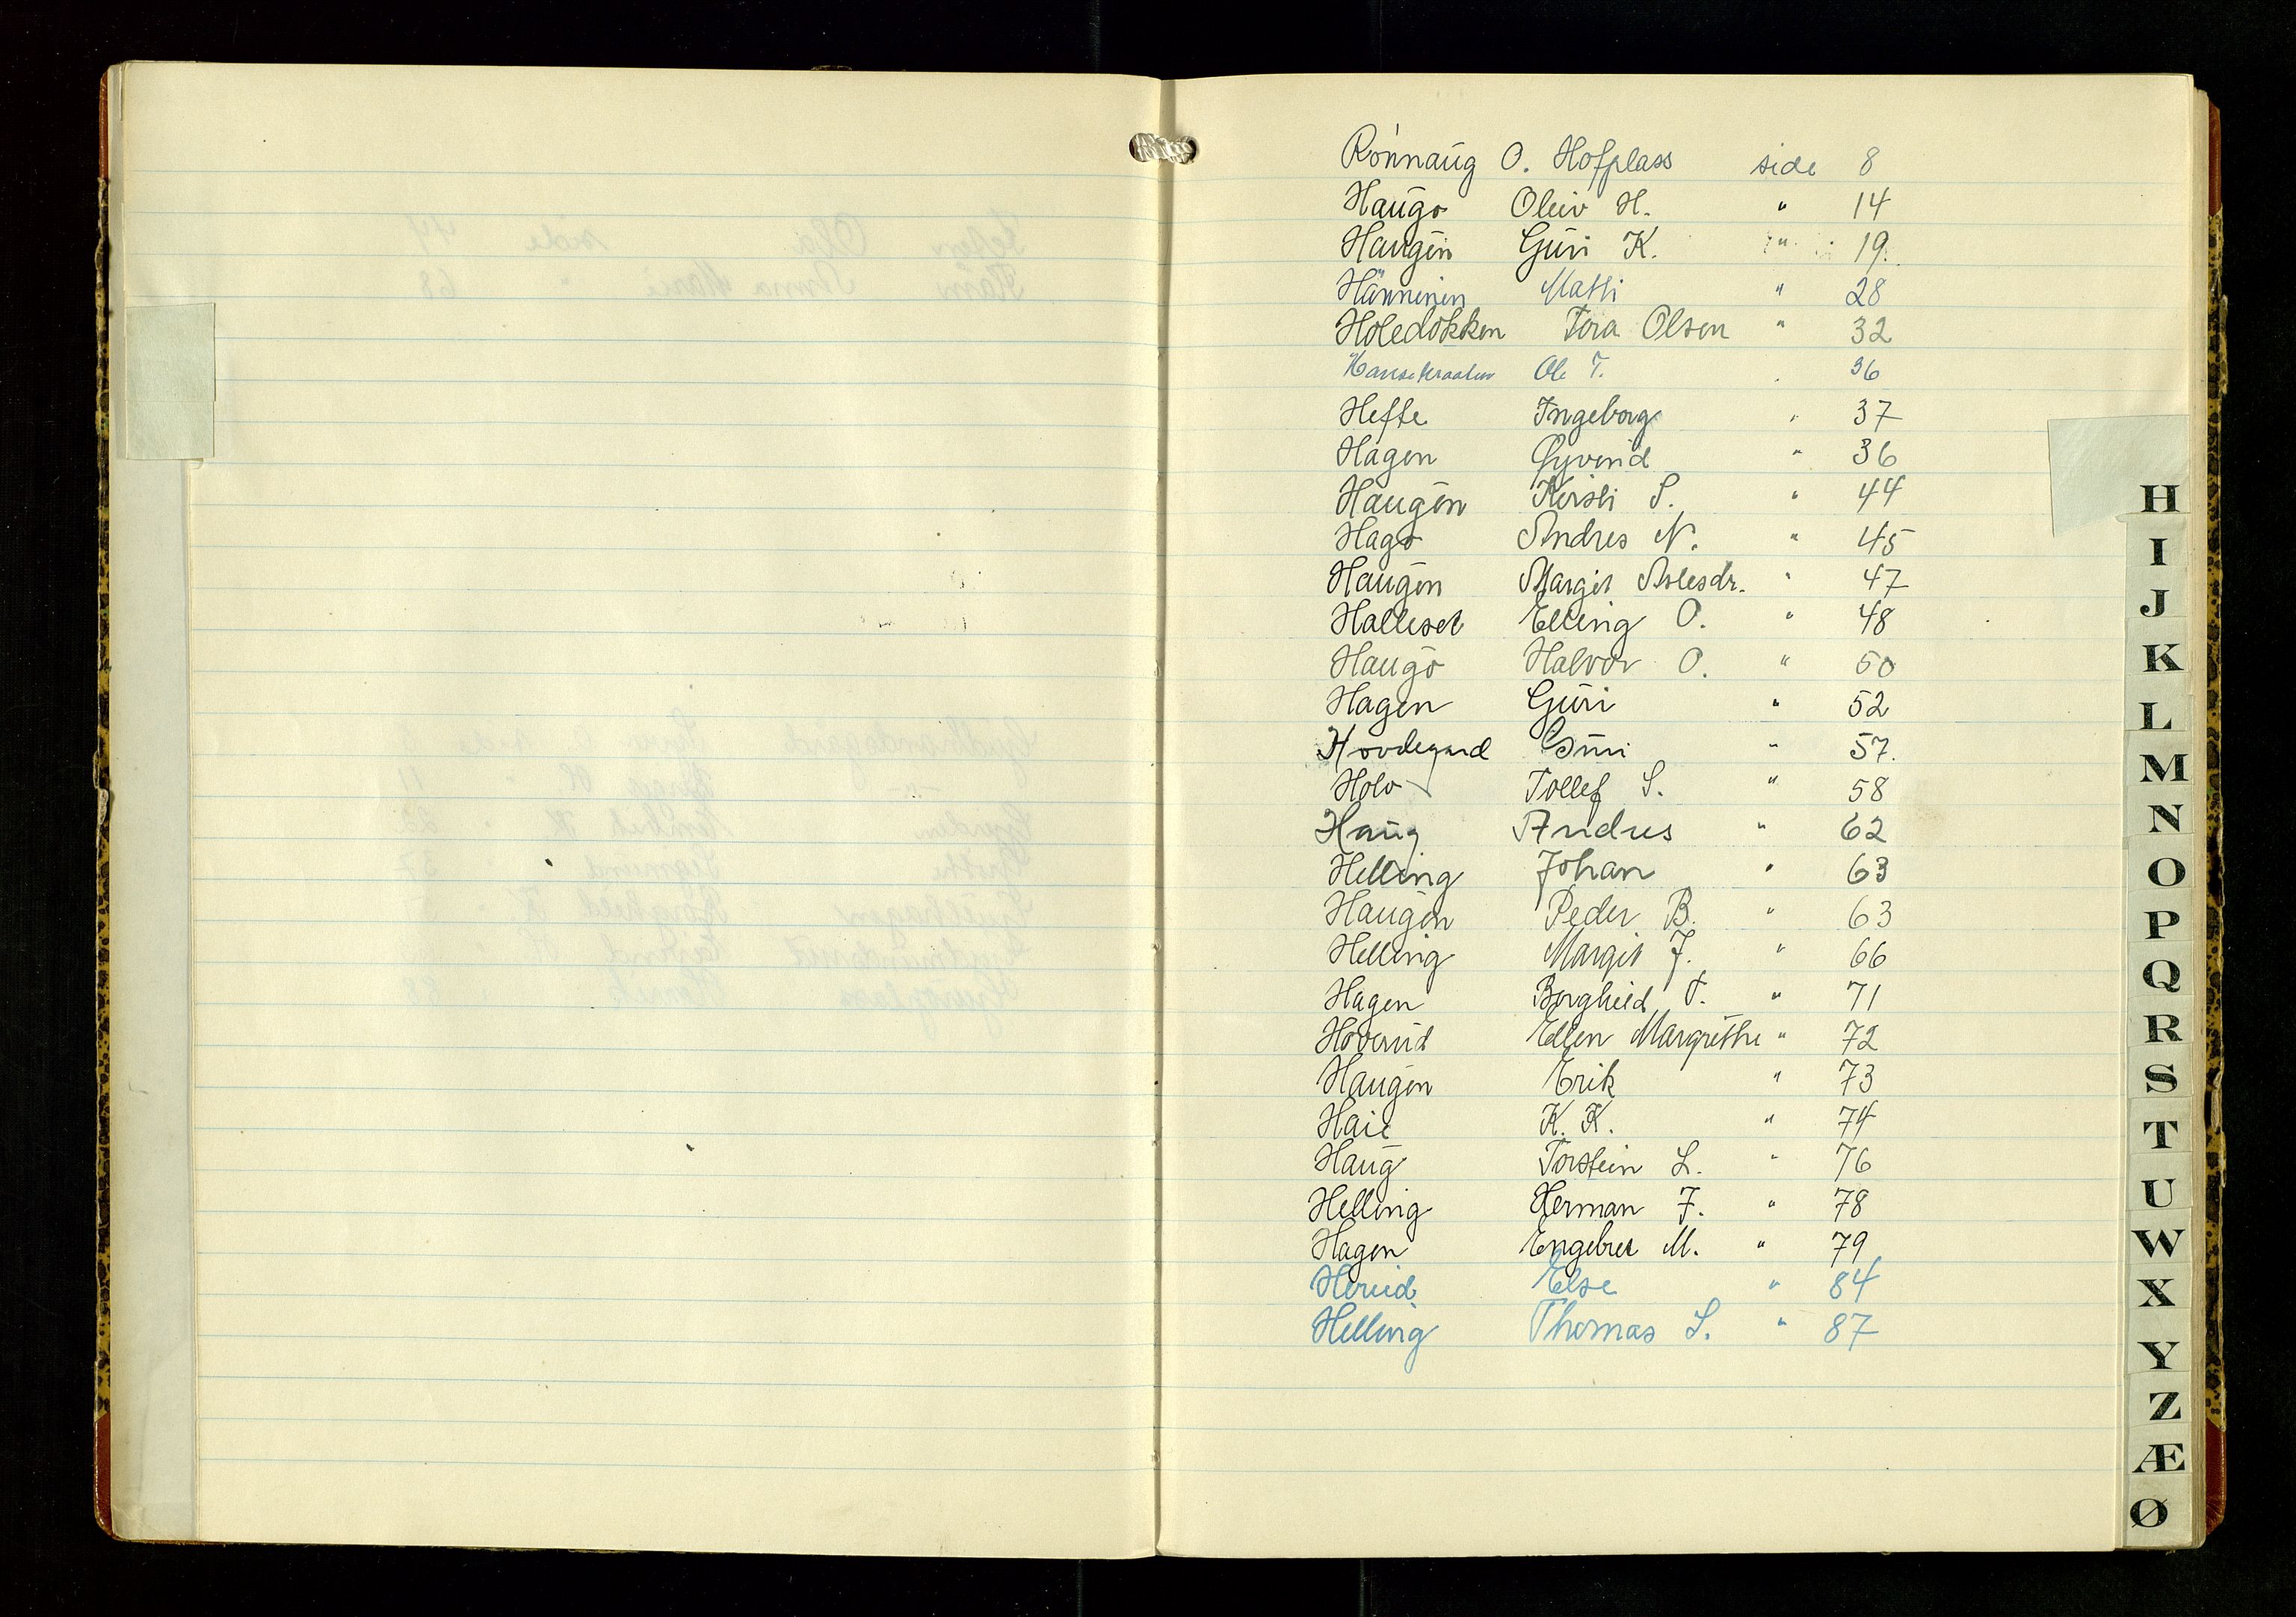 Rönnaug O. Hofplass side 8
Haugo Oleiv H. " 14
Haugen Guri K. " 19.
Hänninen Matti " 28
Holedokken Tora Olsen " 32
Ole T. 36
Hefte Ingeborg " 37
Hagen Øyvind " 36
Haugen Kirsti S. " 44
Hago Andres N. " 45
Haugen Margit Aslesdr. " 47
Halliset Elling O. " 48
Haugo Halvor O. " 50
Hagen Guri " 52
Hovdegard Guri " 57.
Holo Tollef S. " 58
Haug Andres " 62
Helling Johan " 63
Haugen Peder B. " 63
Helling Margit J. " 66
Hagen Borghild T. " 71
Hoverud Ellen Margrethe " 72
Haugen Erik " 73
Haie K. K. " 74
Haug Torstein L. " 76
Helling Herman J. " 78
Hagen Engebret M. " 79
Herud Else " 84
Helling Thomas L. " 87
H
I
J
K
L
M
N
O
P
Q
R
S
T
U
W
X
Y
Z
Æ
Ø